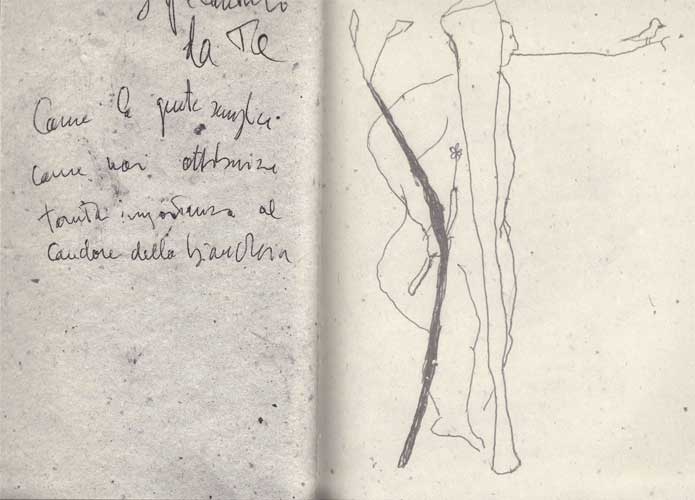 da Te
Come la gente semplice
come noi attribuisce
tanta importanza al
candore della biancheria